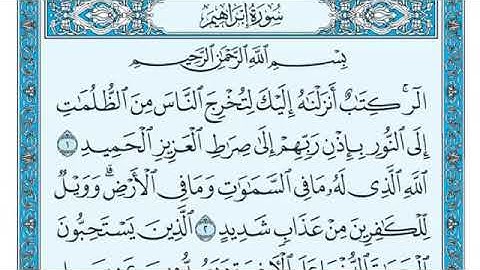 سُورَةُ إِبْرَاهِيمَ
بِسْمِ اللَّهِ الرَّحْمَٰنِ الرَّحِيمِ
الٓر ۚ كِتَٰبٌ أَنزَلْنَٰهُ إِلَيْكَ لِتُخْرِجَ النَّاسَ مِنَ الظُّلُمَٰتِ
إِلَى النُّورِ بِإِذْنِ رَبِّهِمْ إِلَىٰ صِرَٰطِ الْعَزِيزِ الْحَمِيدِ ١
اللَّهِ الَّذِي لَهُۥ مَا فِي السَّمَٰوَٰتِ وَمَا فِي الْأَرْضِ ۗ وَوَيْلٌ
لِّلْكَٰفِرِينَ مِنْ عَذَابٍ شَدِيدٍ ٢ الَّذِينَ يَسْتَحِبُّونَ